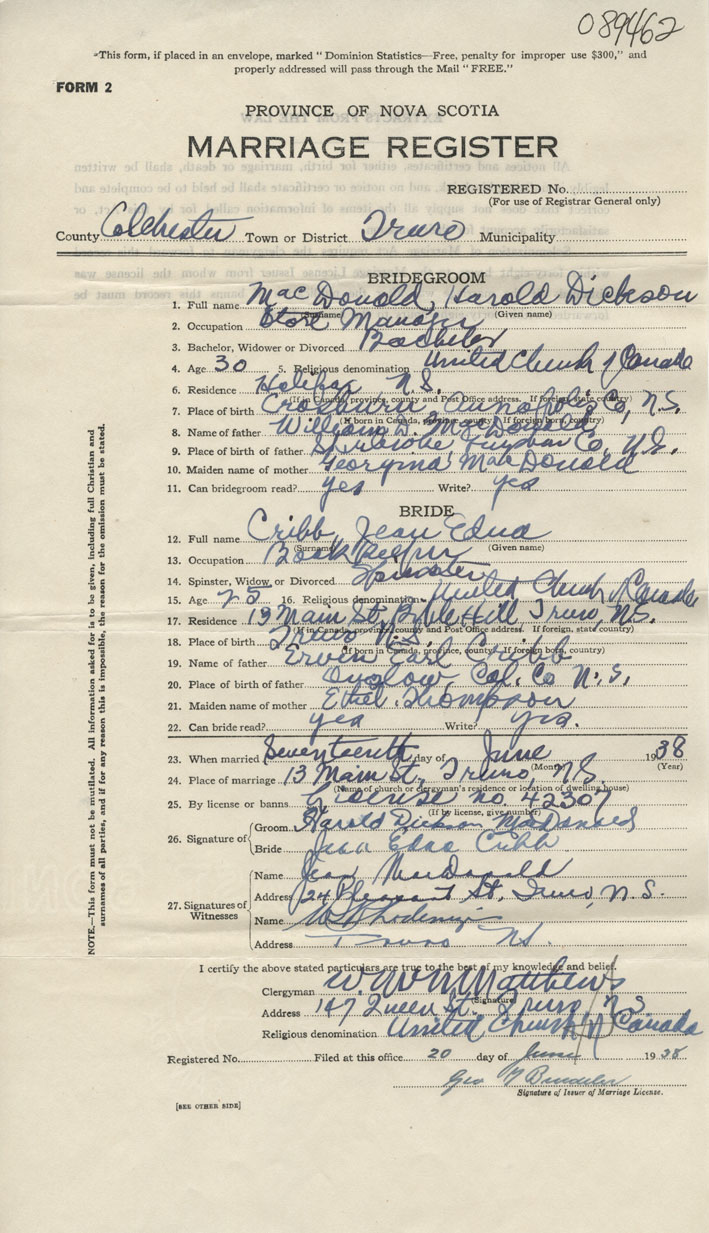 089462
*This form, if placed in an envelope, marked "Dominion Statistics—Free, penalty for improper use $300," and
properly addressed will pass through the Mail "FREE."
FORM 2
PROVINCE OF NOVA SCOTIA
MARRIAGE REGISTER
REGISTERED No.
(For use of Registrar General only)
County Colchester Town or District Truro Municipality
BRIDEGROOM
1. Full name MacDonald, Harold Dickson
(Surname) (Given name)
2. Occupation Store Manager
3. Bachelor, Widower or Divorced Bachelor
4. Age 30 5. Religious denomination United Church of Canada
6. Residence Halifax N.S.
(If in Canada, province, county and Post Office address. If foreign, state country)
7. Place of birth Annapolis Co, N.S.
(If born in Canada, province, county. If foreign born, country)
8. Name of father William D. MacDonald
9. Place of father Co. N.S.
10. Maiden name of mother Georgina MacDonald
11. Can bridegroom read? yes Write? yes
BRIDE
12. Full name Cribb, Jean Edna
(Surname) (Given name)
13. Occupation Book keeper
14. Spinster, Widow or Divorced Spinster
15. Age 25 16. Religious denomination United Church of Canada
17. Residence 13 Main St. Bible Hill Truro, N.S.
(If in Canada, province, county and Post Office address. If foreign, state country)
18. Place of birth Truro N.S.
(If born in Canada, province, county. If foreign born, country)
19. Name of father Ervin Earl Cribb
20. Place of birth of father Onslow, Col. Co N.S.
21. Maiden name of mother Ethel Thompson
22. Can bride read? yes Write? yes.
23. When married Seventeenth day of June 1938
(Month) (Year)
24. Place of marriage 13 Main St, Truro, N.S.
(Name of church or clergyman's residence or location of dwelling house)
25. By license or banns License no. 42307
(If by license, give number)
26. Signature of Groom Harold Dickson MacDonald
Bride Jean Edna Cribb
27. Signatures of Witnesses Name Jean MacDonald
Address 24 Pleasant St, Truro, N.S.
Name
Address Truro NS.
I certify the above stated particulars are true to the best of my knowledge and belief.
Clergyman Matthews
(Signature)
Address 147 Queen St. Truro NS
Religious denomination United Church of Canada
Registered No. Filed at this office 20 day of June 1938
Geo
Signature of Issuer of Marriage License.
[SEE OTHER SIDE]
NOTE.—This form must not be mutilated. All information asked for is to be given, including full Christian and
surnames of all parties, and if for any reason this is impossible, the reason for the omission must be stated.